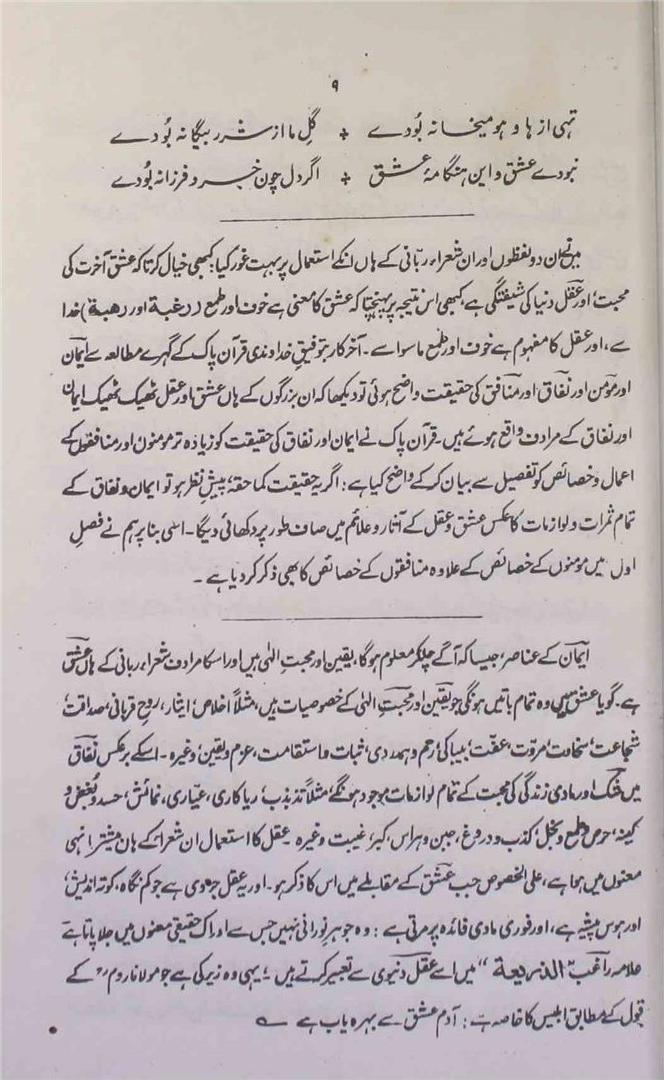 ۹
تہی از ہا و ہو میخانہ بُودے ٭ گلِ ما از شرر بیگانہ بُودے
نبودے عشق و این ہنگامۂ عشق ٭ اگر دل چون خرد فرزانہ بُودے
مینے ان دو لفظوں اور ان شعراء ربّانی کے ہاں انکے استعمال پر بہت غور کیا؛ کبھی خیال کرتا کہ عشق آخرت کی
محبت، اور عقل دنیا کی شیفتگی ہے، کبھی اس نتیجہ پر پہنچتا کہ عشق کا معنی ہے خوف اور طمع (رغبة اور رهبة) خدا
سے، اور عقل کا مفہوم ہے خوف اور طمع ماسوا سے۔ آخر کار بتوفیقِ خداوندی قرآن پاک کے گہرے مطالعہ سے ایمان
اور مؤمن اور نفاق اور منافق کی حقیقت واضح ہوئی تو دیکھا کہ ان بزرگوں کے ہاں عشق اور عقل ٹھیک ٹھیک ایمان
اور نفاق کے مرادف واقع ہوئے ہیں۔ قرآن پاک نے ایمان اور نفاق کی حقیقت کو زیادہ تر مومنوں اور منافقوں کے
اعمال و خصائص کو تفصیل سے بیان کر کے واضح کیا ہے: اگر یہ حقیقت کماحقہ، پیشِ نظر ہو تو ایمان و نفاق کے
تمام ثمرات و لوازمات کا عکس عشق و عقل کے آثار و علائم میں صاف طور پر دکھائی دیگا۔ اسی بنا پر ہم نے فصلِ
اول میں مومنوں کے خصائص کے علاوہ منافقوں کے خصائص کا بھی ذکر کر دیا ہے۔
ایمان کے عناصر، جیسا کہ آگے چلکر معلوم ہوگا، یقین اور محبتِ الٰہی ہیں اور اسکا مرادف شعراء ربانی کے ہاں عشق
ہے۔ گویا عشق میں وہ تمام باتیں ہونگی جو یقین اور محبتِ الٰہی کے خصوصیات ہیں، مثلاً اخلاص، ایثار، روحِ قربانی، صداقت،
شجاعت، سخاوت، مروّت، عفت، بیباکی، رحم و ہمدردی، ثبات و استقامت، عزم و یقین، وغیرہ۔ اسکے برعکس نفاق
میں شک اور مادی زندگی کی محبت کے تمام لوازمات موجود ہونگے، مثلاً تذبذب، ریاکاری، عیاری، نمائش، حسد و بُغض و
کینہ، حرص و طمع و بخل، کذب و دروغ، جبن و ہراس، کبر، غیبت وغیرہ۔ عقل کا استعمال ان شعراء کے ہاں بیشتر انہی
معنوں میں ہوا ہے، علی الخصوص جب عشق کے مقابلے میں اس کا ذکر ہو۔ اور یہ عقل جزوی ہے جو کم نگاہ، کوتہ اندیش،
اور ہوس پیشہ ہے، اور فوری مادی فائدہ پر مرتی ہے: وہ جوہرِ نورانی نہیں جس سے ادراک حقیقی معنوں میں جلا پاتا ہے
علامہ راغب ”الذریعة“ میں اسے عقلِ دنیوی سے تعبیر کرتے ہیں؛ یہی وہ زیرکی ہے جو مولانا روم رح کے
قول کے مطابق ابلیس کا خاصہ ہے: آدم عشق سے بہرہ یاب ہے ؎